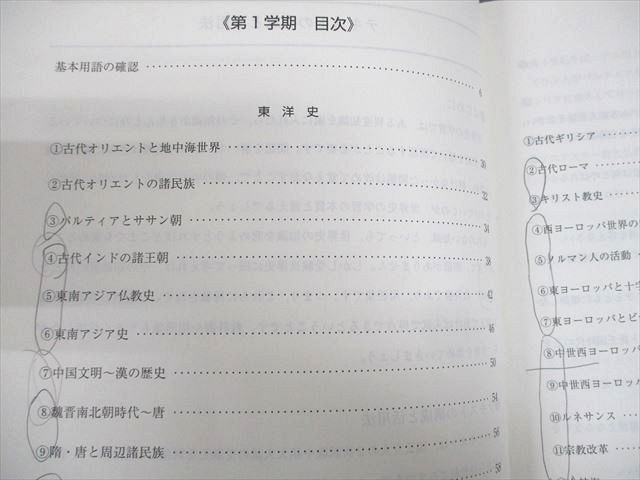 《第1学期 目次》
基本用語の確認 6
東洋史
①古代オリエントと地中海世界 30
②古代オリエントの諸民族 32
③パルティアとササン朝 34
④古代インドの諸王朝 38
⑤東南アジア仏教史 42
⑥東南アジア史 46
⑦中国文明～漢の歴史 50
⑧魏晋南北朝時代～唐 54
⑨隋・唐と周辺諸民族 56
58
①古代ギリシア
②古代ローマ
③キリスト教史
④西ヨーロッパ世界の
⑤ゲルマン人の活動
⑥東ヨーロッパと十字
⑦東ヨーロッパとビ
⑧中世西ヨーロッパ
⑨中世西ヨーロッ
⑩ルネサンス
⑪宗教改革